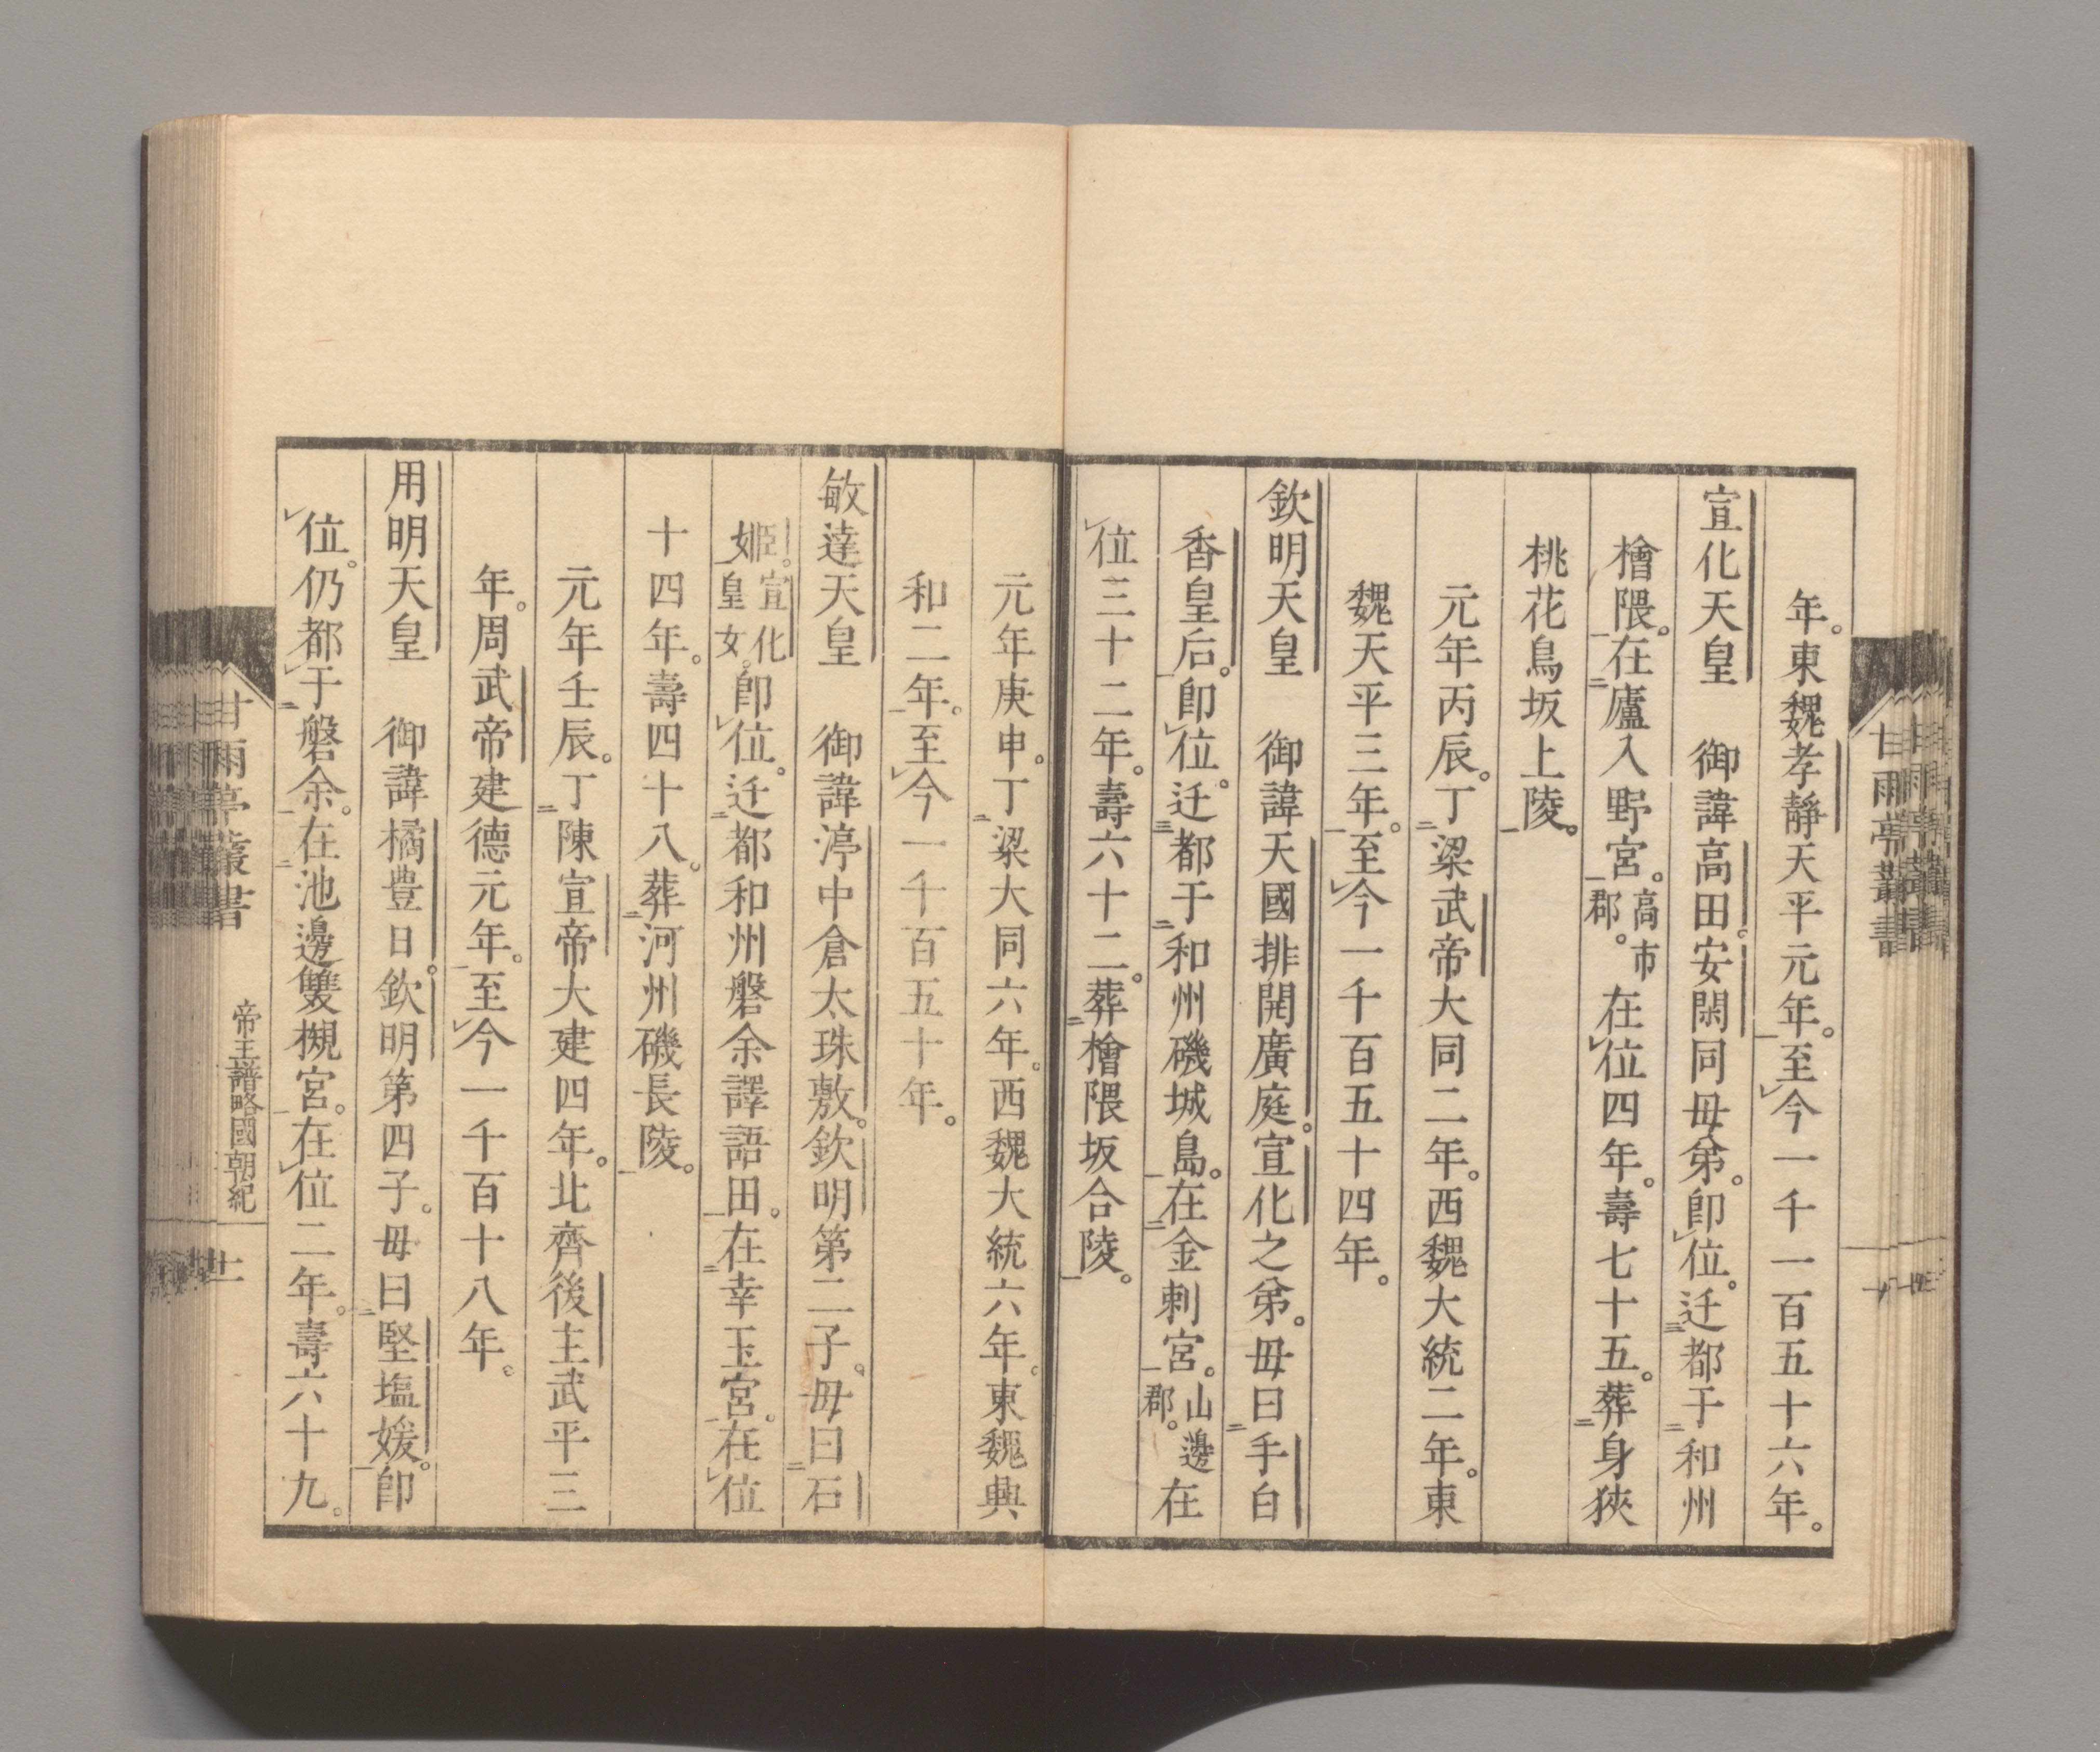 年。東魏孝靜天平元年。至今一千一百五十六年。
宣化天皇　御諱高田。安閑同母弟。卽位。迁都于和州
檜隈。在廬入野宮。高市郡。在位四年。壽七十五。葬身狹
桃花鳥坂上陵。
元年丙辰。丁梁武帝大同二年。西魏大統二年。東
魏天平三年。至今一千百五十四年。
欽明天皇　御諱天國排開廣庭。宣化之弟。母曰手白
香皇后。卽位。迁都于和州磯城島。在金刺宮。山邊郡。在
位三十二年。壽六十二。葬檜隈坂合陵。
元年庚申。丁梁大同六年。西魏大統六年。東魏興
和二年。至今一千百五十年。
敏達天皇　御諱渟中倉太珠敷。欽明第二子。母曰石
姬。宣化皇女。卽位。迁都和州磐余譯語田。在幸玉宮。在位
十四年。壽四十八。葬河州磯長陵。
元年壬辰。丁陳宣帝大建四年。北齊後主武平三
年。周武帝建德元年。至今一千百十八年。
用明天皇　御諱橘豊日。欽明第四子。母曰堅塩媛。卽
位。仍都于磐余。在池邊雙槻宮。在位二年。壽六十九。
甘雨亭叢書
帝王譜略國朝紀
十一
甘雨亭叢書